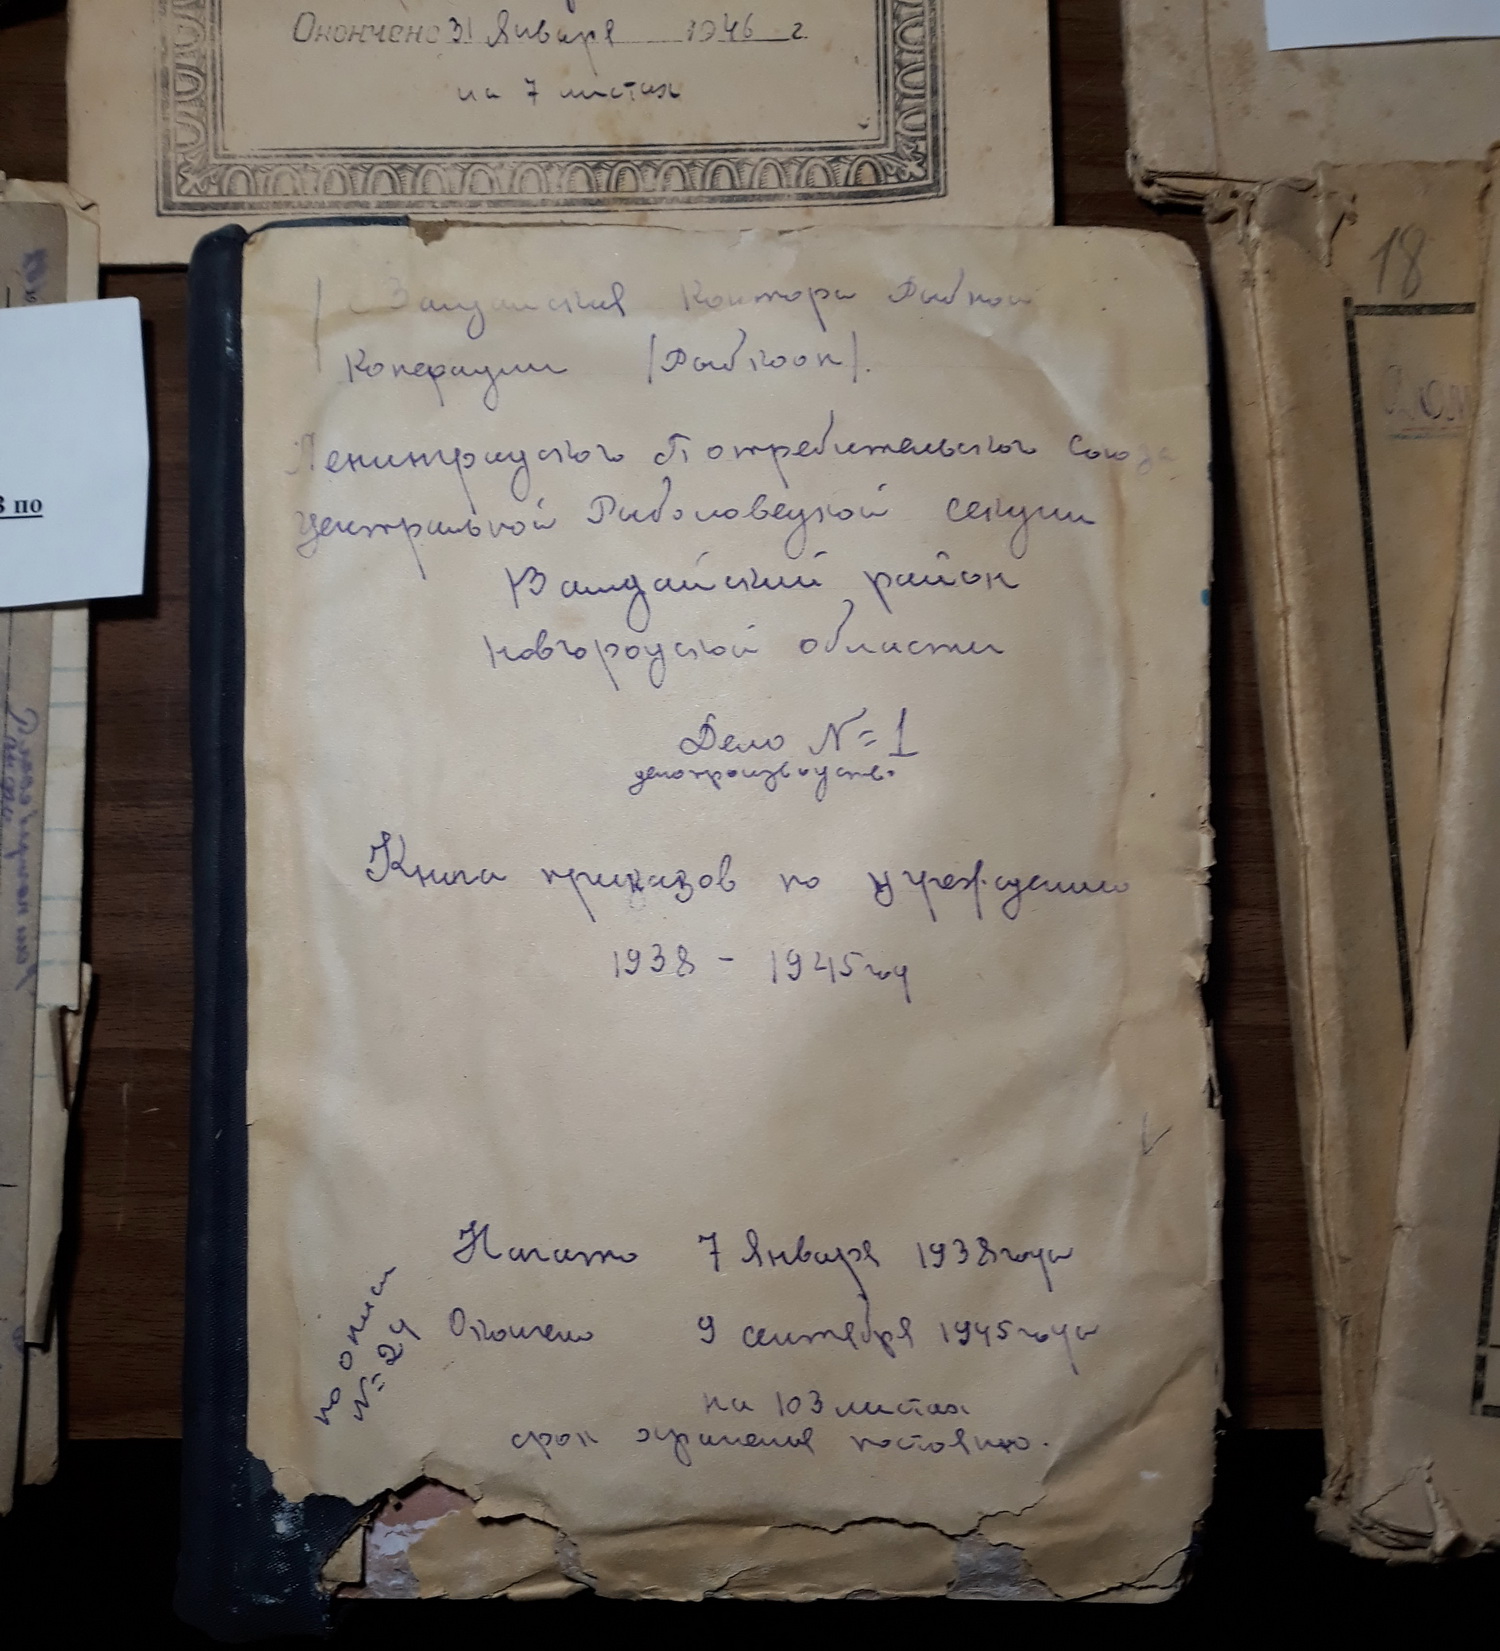 Окончено 31 Января 1946 г.
на 7 листах
18
3 по
Валдайская Контора Рыбной
Коперации /Рыбкооп/.
Ленинградского Потребительского Союза
Центральной Рыболовецкой секции
Валдайский район
Новгородской области
Дело № 1
делопроизводств.
Книга приказов по учреждению
1938 - 1945 год
Начато 7 Января 1938 года
Окончено 9 сентября 1945 года
по описи
№ 24
на 103 листах
срок хранения постоянно.